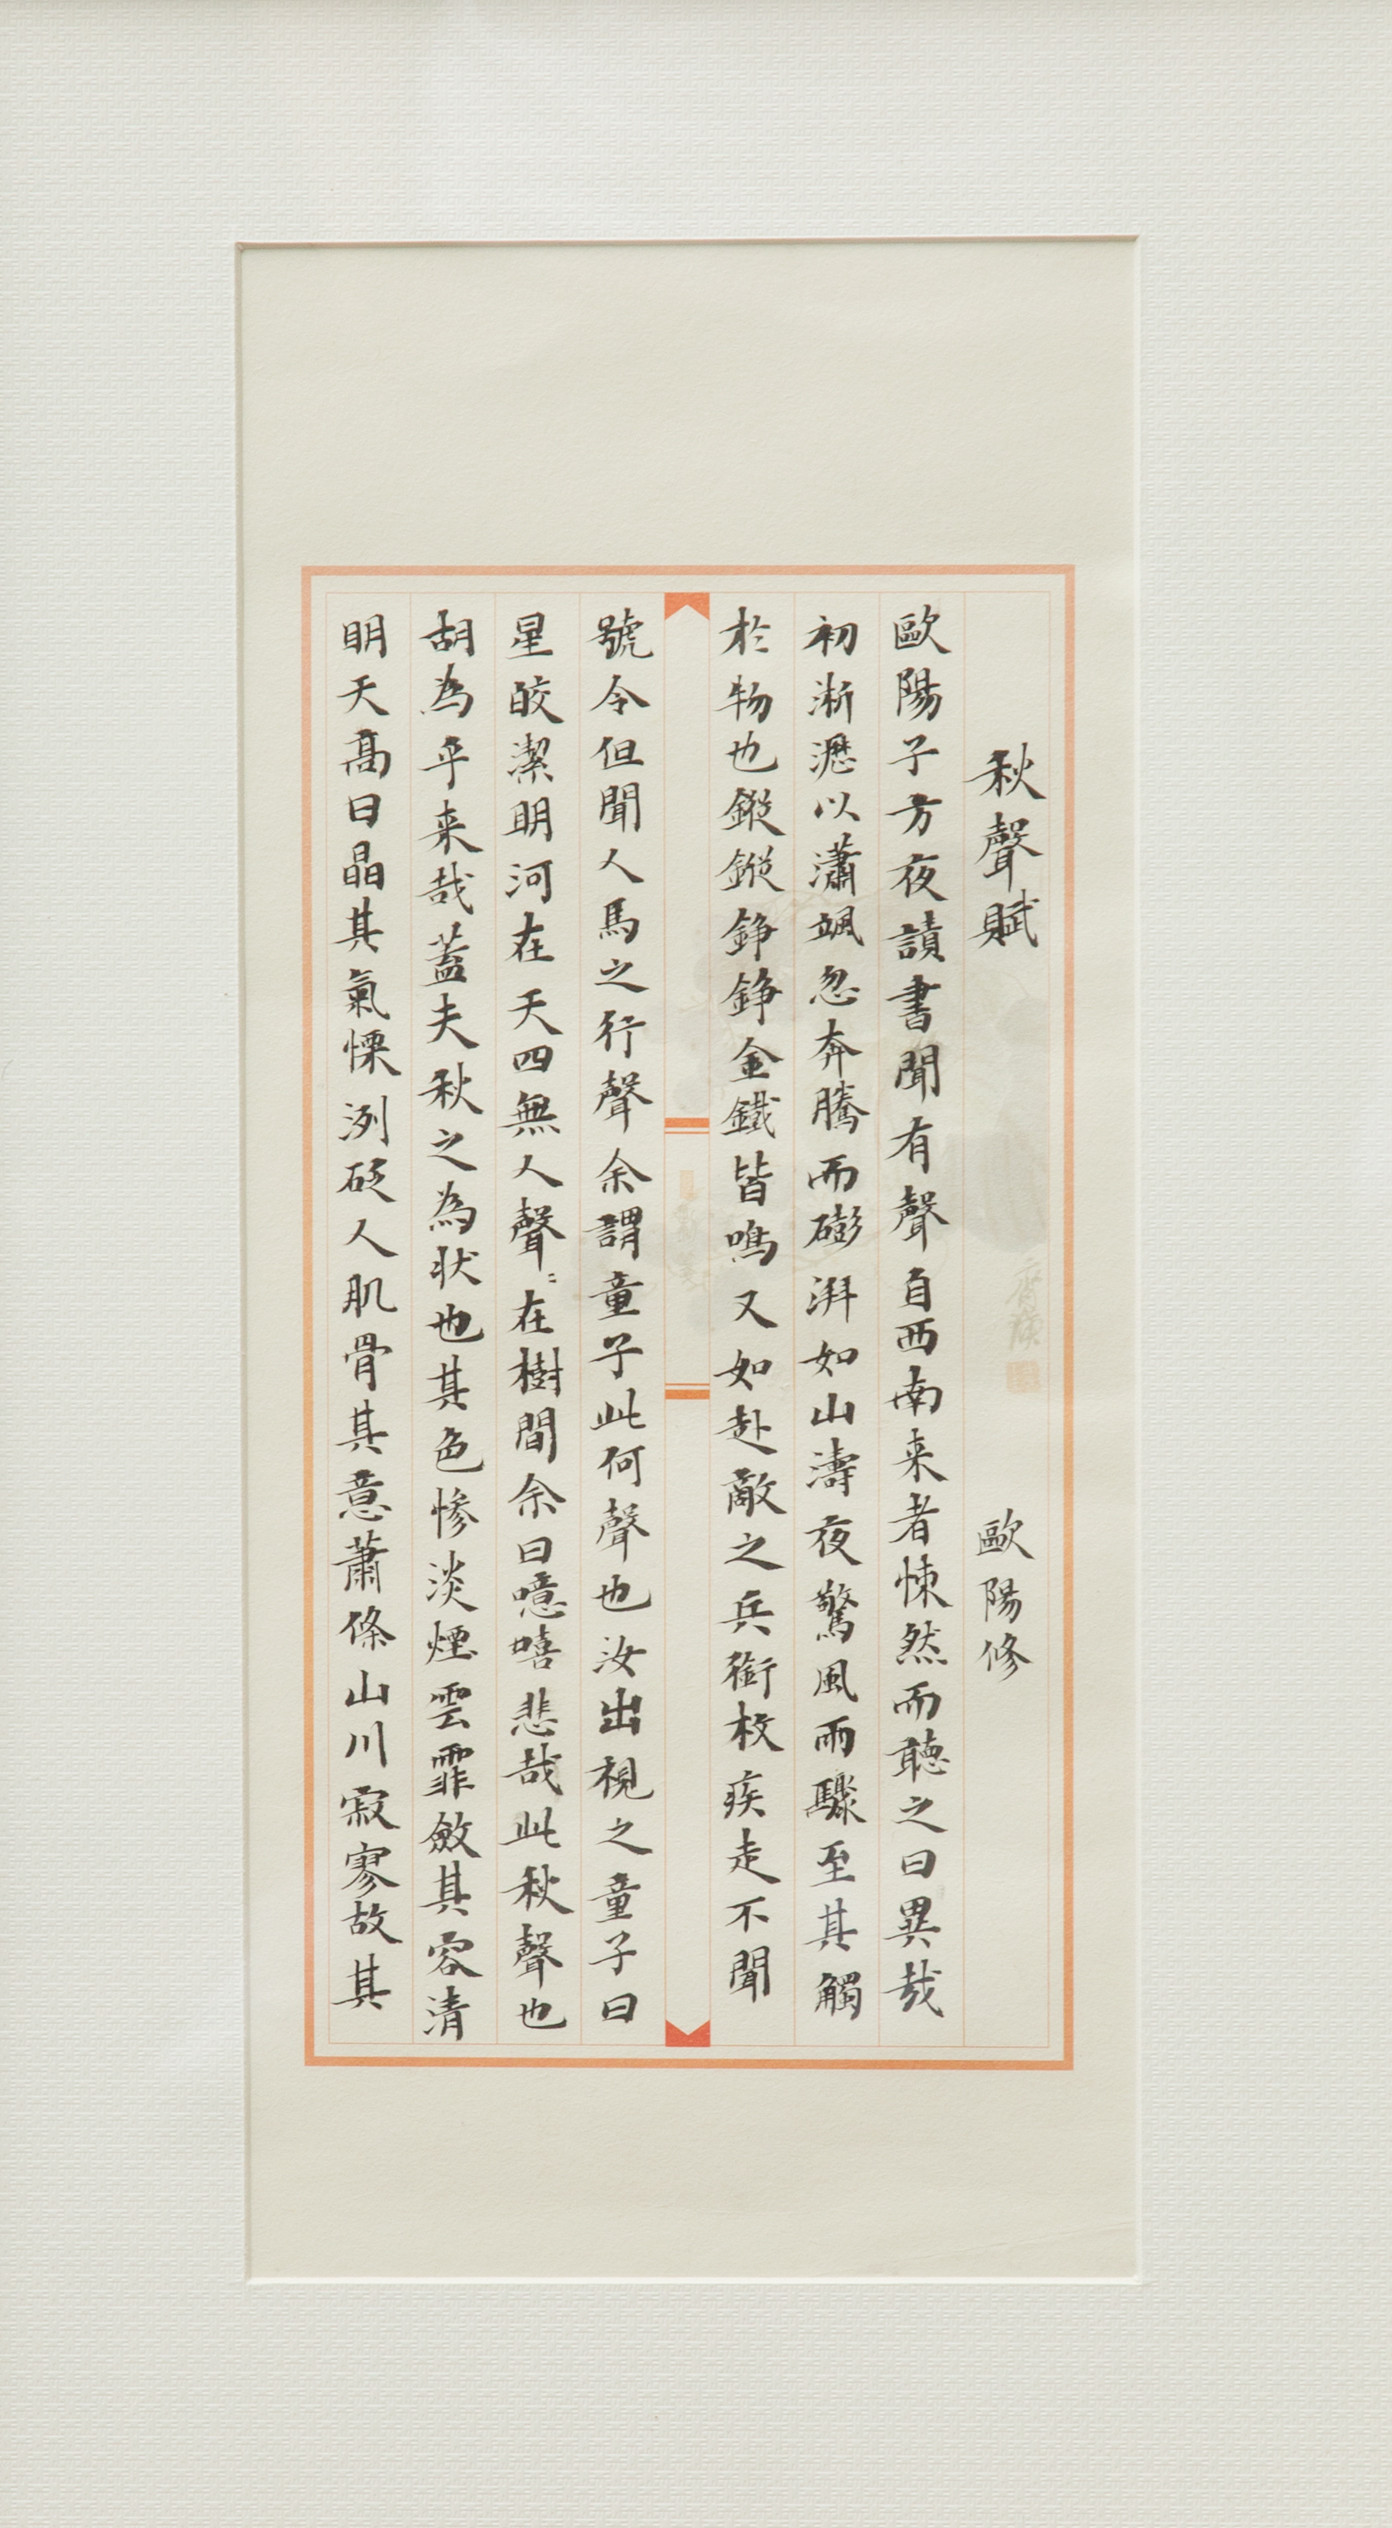 秋聲賦 歐陽修
歐陽子方夜讀書聞有聲自西南来者悚然而聽之曰異哉
初淅瀝以瀟颯忽奔騰而磅湃如山濤夜驚風雨驟至其觸
於物也鏦鏦錚錚金鐵皆鳴又如赴敵之兵銜枚疾走不聞
號令但聞人馬之行聲余謂童子此何聲也汝出視之童子曰
星皎潔明河在天四無人聲〻在樹間余曰噫嘻悲哉此秋聲也
胡為乎来哉蓋夫秋之為狀也其色慘淡煙雲霏斂其容清
明天高日晶其氣慄洌砭人肌骨其意蕭條山川寂寥故其